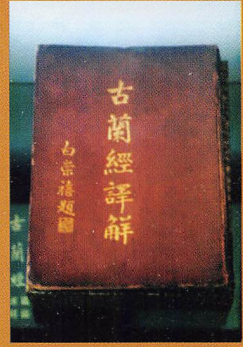 古蘭經譯解
白崇禧題
古蘭經